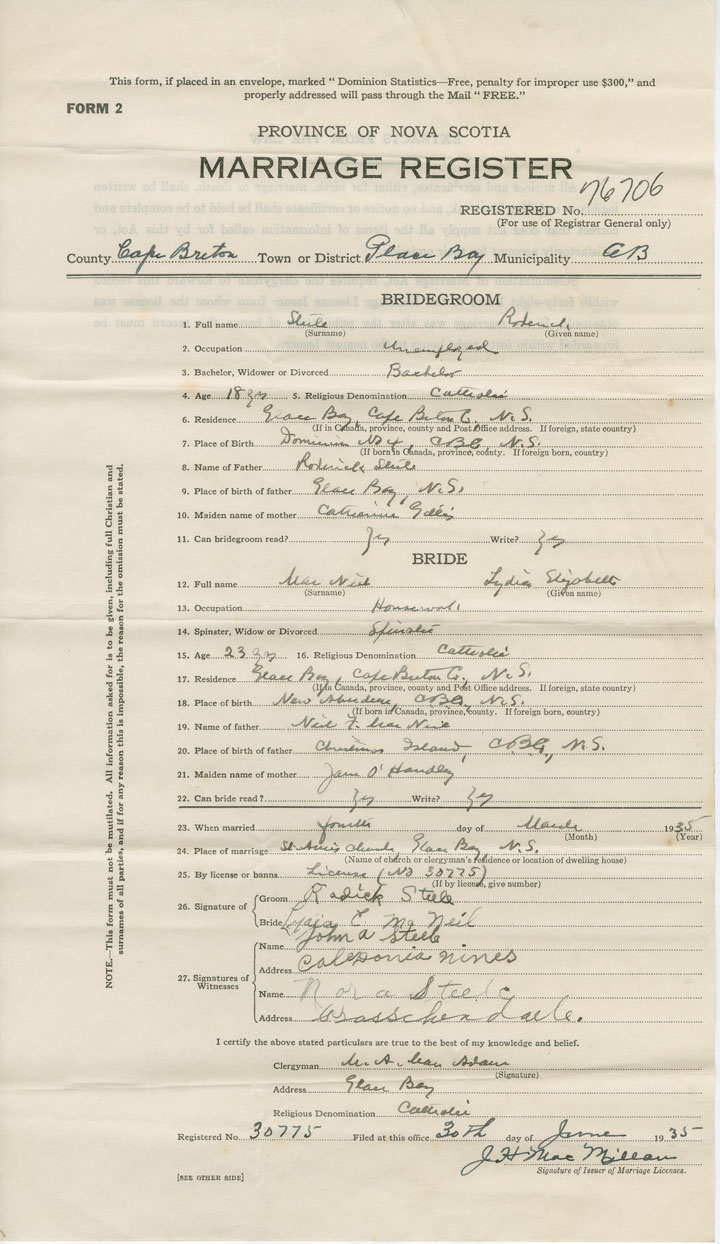 This form, if placed in an envelope, marked " Dominion Statistics—Free, penalty for improper use $300," and
properly addressed will pass through the Mail " FREE."
FORM 2
PROVINCE OF NOVA SCOTIA
MARRIAGE REGISTER
76706
REGISTERED No.
(For use of Registrar General only)
County Cape Breton Town or District Glace Bay Municipality CB
BRIDEGROOM
1. Full name Steele Roderick
(Surname) (Given name)
2. Occupation Unemployed
3. Bachelor, Widower or Divorced Bachelor
4. Age 18 yrs 5. Religious Denomination Catholic
6. Residence Glace Bay, Cape Breton Co. N.S.
(If in Canada, province, county and Post Office address. If foreign, state country)
7. Place of Birth Dominion No 4, CBCo N.S.
(If born in Canada, province, county. If foreign born, county)
8. Name of Father Roderick Steele
9. Place of birth of father Glace Bay, N.S.
10. Maiden name of mother Catharine Gillis
11. Can bridegroom read? Yes Write? Yes
BRIDE
12. Full name Mac Neil Lydia Elizabeth
(Surname) (Given name)
13. Occupation Housework
14. Spinster, Widow or Divorced Spinster
15. Age 23 yrs 16. Religious Denomination Catholic
17. Residence Glace Bay, Cape Breton Co., N.S.
(If in Canada, province, county and Post Office address. If foreign, state country)
18. Place of birth New Aberdeen, CBCo, N.S.
(If born in Canada, province, county. If foreign born, country)
19. Name of father Neil F. Mac Neil
20. Place of birth of father Christmas Island, CBCo, N.S.
21. Maiden name of mother Jane O'Handley
22. Can bride read? Yes Write? Yes
23. When married fourth day of March 1935
(Month) (Year)
24. Place of marriage St Anne's Church, Glace Bay N.S.
(Name of church or clergyman's residence or location of dwelling house)
25. By license or banns License (No 30775)
(If by license, give number)
26. Signature of
Groom Rodick Steele
Bride Lydia E. Mc Neil
27. Signatures of Witnesses
Name John A Steele
Address Caledonia mines
Name Nora Steele
Address Passchendaele.
I certify the above stated particulars are true to the best of my knowledge and belief.
Clergyman M. A. Mac Adam
(Signature)
Address Glace Bay
Religious Denomination Catholic
Registered No. 30775 Filed at this office 30th day of June 1935
J. H. Mac Millan
Signature of Issuer of Marriage Licenses.
[SEE OTHER SIDE]
NOTE.—This form must not be mutilated. All information asked for is to be given, including full Christian and
surnames of all parties, and if for any reason this is impossible, the reason for the omission must be stated.